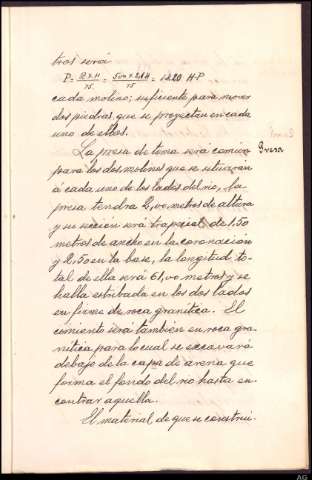 tros será
P = Q×H/75 = 500×2,1H/75 = 1420 H.P
cada molino; suficiente para mover
dos piedras, que se proyectan en cada
uno de ellos.
La presa de toma será comun Presa
para los dos molinos que se situarán
á cada uno de los lados del rio, la
presa tendrá 2,00 metros de altura
y su sección será trapecial de 1,50
metros de ancho en la coronación
y 2,50 en la base, la longitud to-
tal de ella será 61,00 metros y se
halla estribada en los dos lados
en firme de roca granítica. El
cimiento será tambien en roca gra-
nítica para lo cual se excavará
debajo de la capa de arena que
forma el fondo del rio hasta en-
contrar aquella.
El material de que se construi-
AG